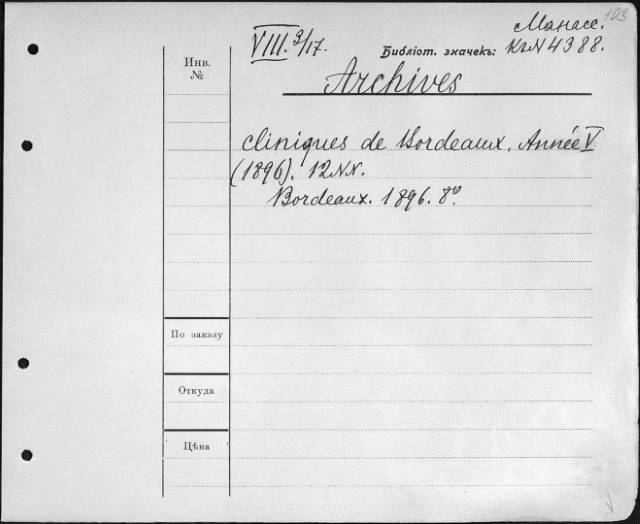 103
Манасс.
VIII. 3/17. Библіот. значекъ: KzN4388.
Инв. №
Archives
cliniques de Bordeaux. Année V
(1896). 12 NN.
Bordeaux. 1896. 8º.
По заказу
Откуда
Цѣна